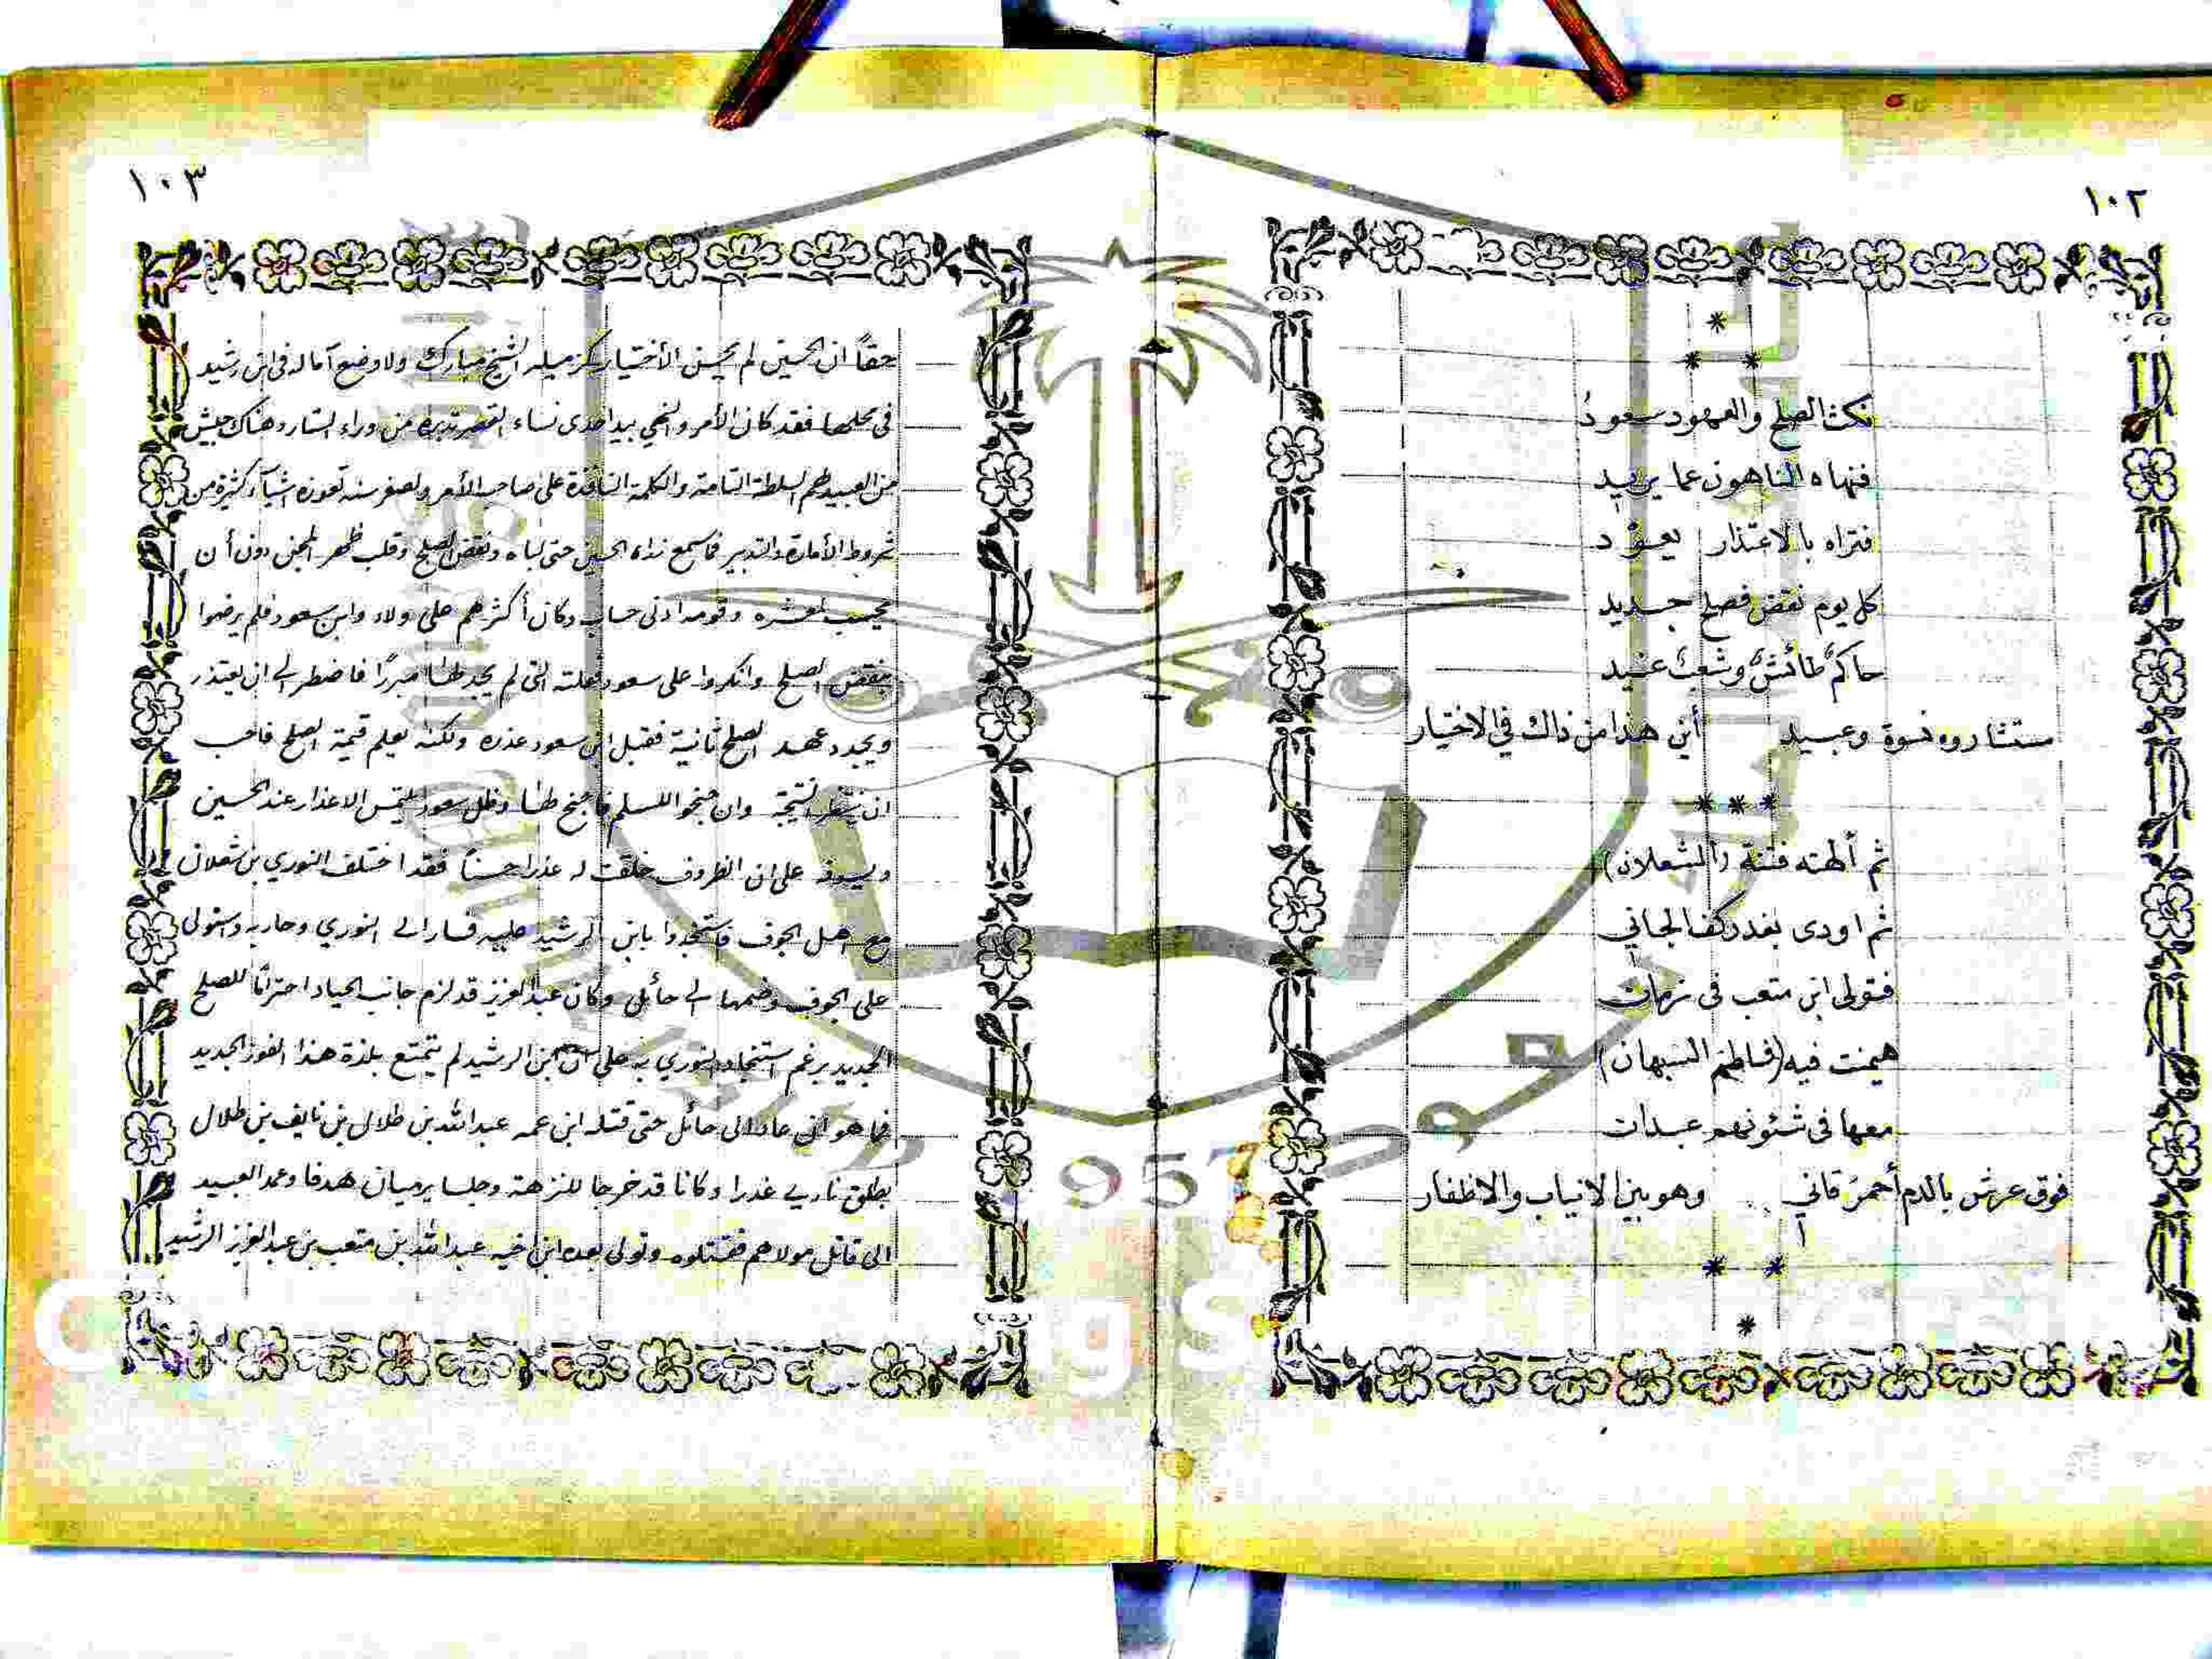 ١٠٢
نكث الصلح والعهود سعودُ
فنهاه الناهون عما يريد
فتراه بالاعتذار يعود
كل يوم نقض فصلح جديد
حاكم طائش وشعب عنيد
مستشاروه نسوة وعبيد أين هذا من ذاك في الاختيار
ثم ألهته فتنة (الشعلان)
ثم اودى بغدر كف الجاني
فتولى ابن متعب فى زمان
هيمنت فيه (فاطم السبهان)
معها فى شئونهم عبدان
فوق عرش بالدم أحمر قاني وهو بين الانياب والاظفار
١٠٣
حقاً ان الحسين لم يحسن الأختيار كزميله الشيخ مبارك ولا وضع آماله فى ابن رشيد
فى محلها فقد كان الأمر والنهي بيد احدى نساء القصر تدبره من وراء الستار وهناك جيش
من العبيد لهم السلطة التامة والكلمة النافذة على صاحب الأمر ولصغر سنه تعوزه اشياء كثيرة من
شروط الأمارة والتدبير فما سمع نداء الحسين حتى لباه ونقض الصلح وقلب ظهر المجن دون أن
يحسب لعشيره وقومه ادنى حساب وكان أكثرهم على ولاء وابن سعود فلم يرضوا
بنقض الصلح وانكروا على سعود فعلته التى لم يجد لها مبررًا فاضطر الى ان يعتذر
ويجدد عهد الصلح ثانية فقبل ابن سعود عذره ولكنه يعلم قيمة الصلح فاحب
ان ينتظر النتيجة وان جنحوا للسلم فاجنح لها وظل سعود يلتمس الاعذار عند الحسين
ويسوف على ان الظروف خلقت له عذرا حسناً فقد اختلف النوري بن شعلان
مع اهل الجوف فاستنجدوا بابن الرشيد عليه فسار الى النوري وحاربه واستولى
على الجوف وضمها الى حائل وكان عبدالعزيز قد لزم جانب الحياد احترامًا للصلح
الجديد برغم استنجاد النوري به على ابن الرشيد لم يتمتع بلذة هذا الفوز الجديد
فما هو أن عاد الى حائل حتى قتله ابن عمه عبدالله بن طلال بن نايف بن طلال
بطلق ناري غدرا وكانا قد خرجا للنزهة وجلسا يرميان هدفا وعمد العبيد
الى قاتل مولاهم فقتلوه وتولى بعده ابن اخيه عبدالله بن متعب بن عبدالعزيز الرشيد